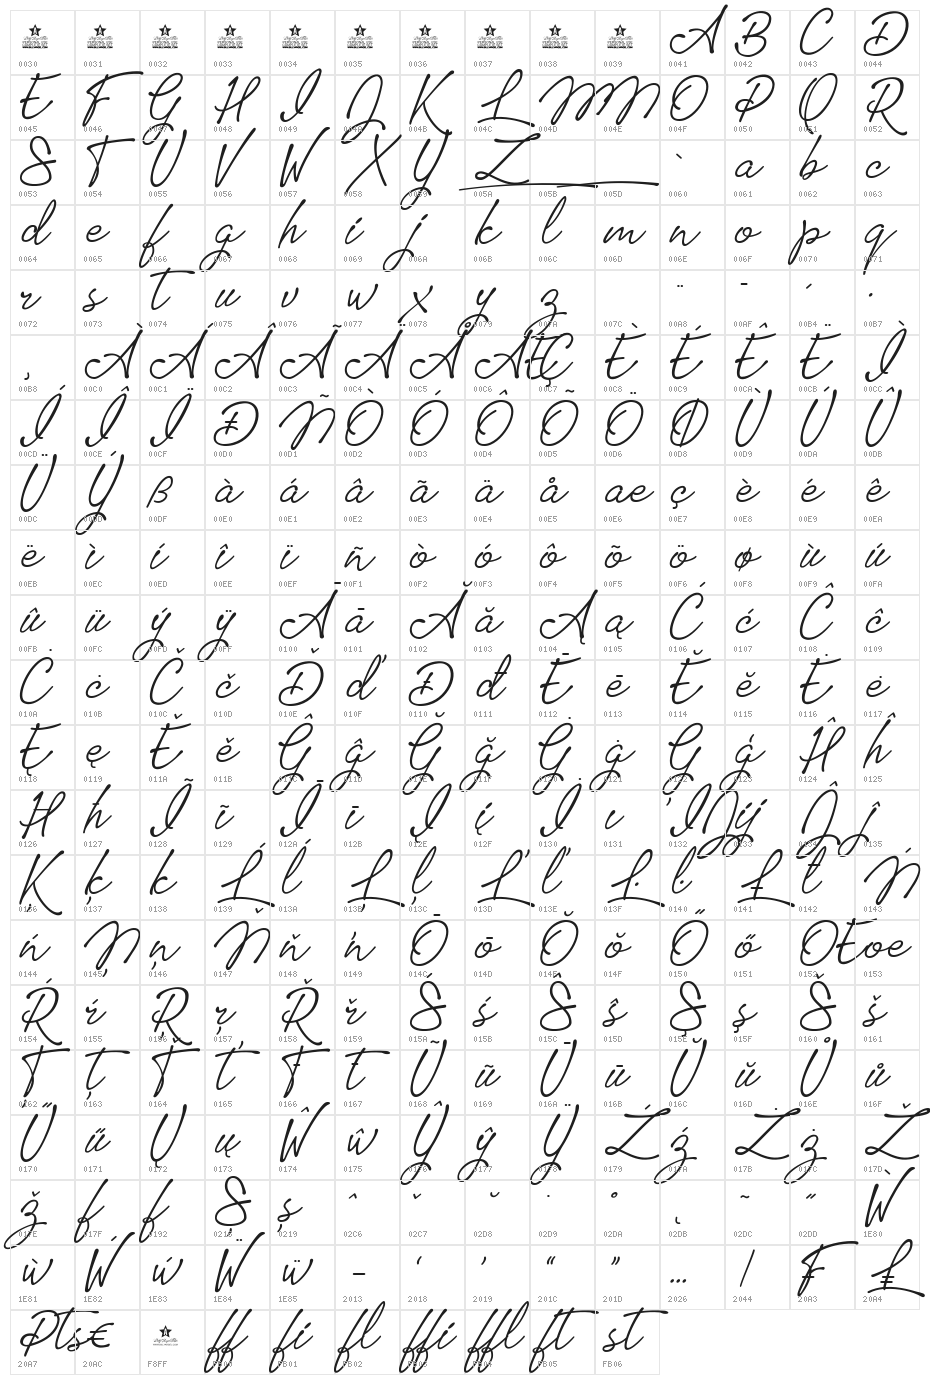 A B C D
0030 0031 0032 0033 0034 0035 0036 0037 0038 0039 0041 0042 0043 0044
E F G H I J K L M N O P Q R
0045 0046 0047 0048 0049 004A 004B 004C 004D 004E 004F 0050 0051 0052
S T U V W X Y Z ` a b c
0053 0054 0055 0056 0057 0058 0059 005A 005B 005D 0060 0061 0062 0063
d e f g h i j k l m n o p q
0064 0065 0066 0067 0068 0069 006A 006B 006C 006D 006E 006F 0070 0071
r s t u v w x y z ¨ ¯ ´ ·
0072 0073 0074 0075 0076 0077 0078 0079 007A 007C 00A8 00AF 00B4 00B7
¸ À Á Â Ã Ä Å Æ Ç È É Ê Ë Ì
00B8 00C0 00C1 00C2 00C3 00C4 00C5 00C6 00C7 00C8 00C9 00CA 00CB 00CC
Í Î Ï Ð Ñ Ò Ó Ô Õ Ö Ø Ù Ú Û
00CD 00CE 00CF 00D0 00D1 00D2 00D3 00D4 00D5 00D6 00D8 00D9 00DA 00DB
Ü Ý ß à á â ã ä å æ ç è é ê
00DC 00DD 00DF 00E0 00E1 00E2 00E3 00E4 00E5 00E6 00E7 00E8 00E9 00EA
ë ì í î ï ñ ò ó ô õ ö ø ù ú
00EB 00EC 00ED 00EE 00EF 00F1 00F2 00F3 00F4 00F5 00F6 00F8 00F9 00FA
û ü ý ÿ Ā ā Ă ă Ą ą Ć ć Ĉ ĉ
00FB 00FC 00FD 00FF 0100 0101 0102 0103 0104 0105 0106 0107 0108 0109
Ċ ċ Č č Ď ď Đ đ Ē ē Ĕ ĕ Ė ė
010A 010B 010C 010D 010E 010F 0110 0111 0112 0113 0114 0115 0116 0117
Ę ę Ě ě Ĝ ĝ Ğ ğ Ġ ġ Ģ ģ Ĥ ĥ
0118 0119 011A 011B 011C 011D 011E 011F 0120 0121 0122 0123 0124 0125
Ħ ħ Ĩ ĩ Ī ī Į į İ ı Ĳ ĳ Ĵ ĵ
0126 0127 0128 0129 012A 012B 012E 012F 0130 0131 0132 0133 0134 0135
Ķ ķ ĸ Ĺ ĺ Ļ ļ Ľ ľ Ŀ ŀ Ł ł Ń
0136 0137 0138 0139 013A 013B 013C 013D 013E 013F 0140 0141 0142 0143
ń Ņ ņ Ň ň ŉ Ō ō Ŏ ŏ Ő ő Œ œ
0144 0145 0146 0147 0148 0149 014C 014D 014E 014F 0150 0151 0152 0153
Ŕ ŕ Ŗ ŗ Ř ř Ś ś Ŝ ŝ Ş ş Š š
0154 0155 0156 0157 0158 0159 015A 015B 015C 015D 015E 015F 0160 0161
Ţ ţ Ť ť Ŧ ŧ Ũ ũ Ū ū Ŭ ŭ Ů ů
0162 0163 0164 0165 0166 0167 0168 0169 016A 016B 016C 016D 016E 016F
Ű ű Ų ų Ŵ ŵ Ŷ ŷ Ÿ Ź ź Ż ż Ž
0170 0171 0172 0173 0174 0175 0176 0177 0178 0179 017A 017B 017C 017D
ž ſ ƒ Ș ș ˆ ˇ ˘ ˙ ˚ ˛ ˜ ˝ Ẁ
017E 017F 0192 0218 0219 02C6 02C7 02D8 02D9 02DA 02DB 02DC 02DD 1E80
ẁ Ẃ ẃ Ẅ ẅ – ‘ ’ “ ” … ⁄ ₣ ₤
1E81 1E82 1E83 1E84 1E85 2013 2018 2019 201C 201D 2026 2044 20A3 20A4
₧ € ff fi fl ffi ffl ft st
20A7 20AC F8FF FB00 FB01 FB02 FB03 FB04 FB05 FB06